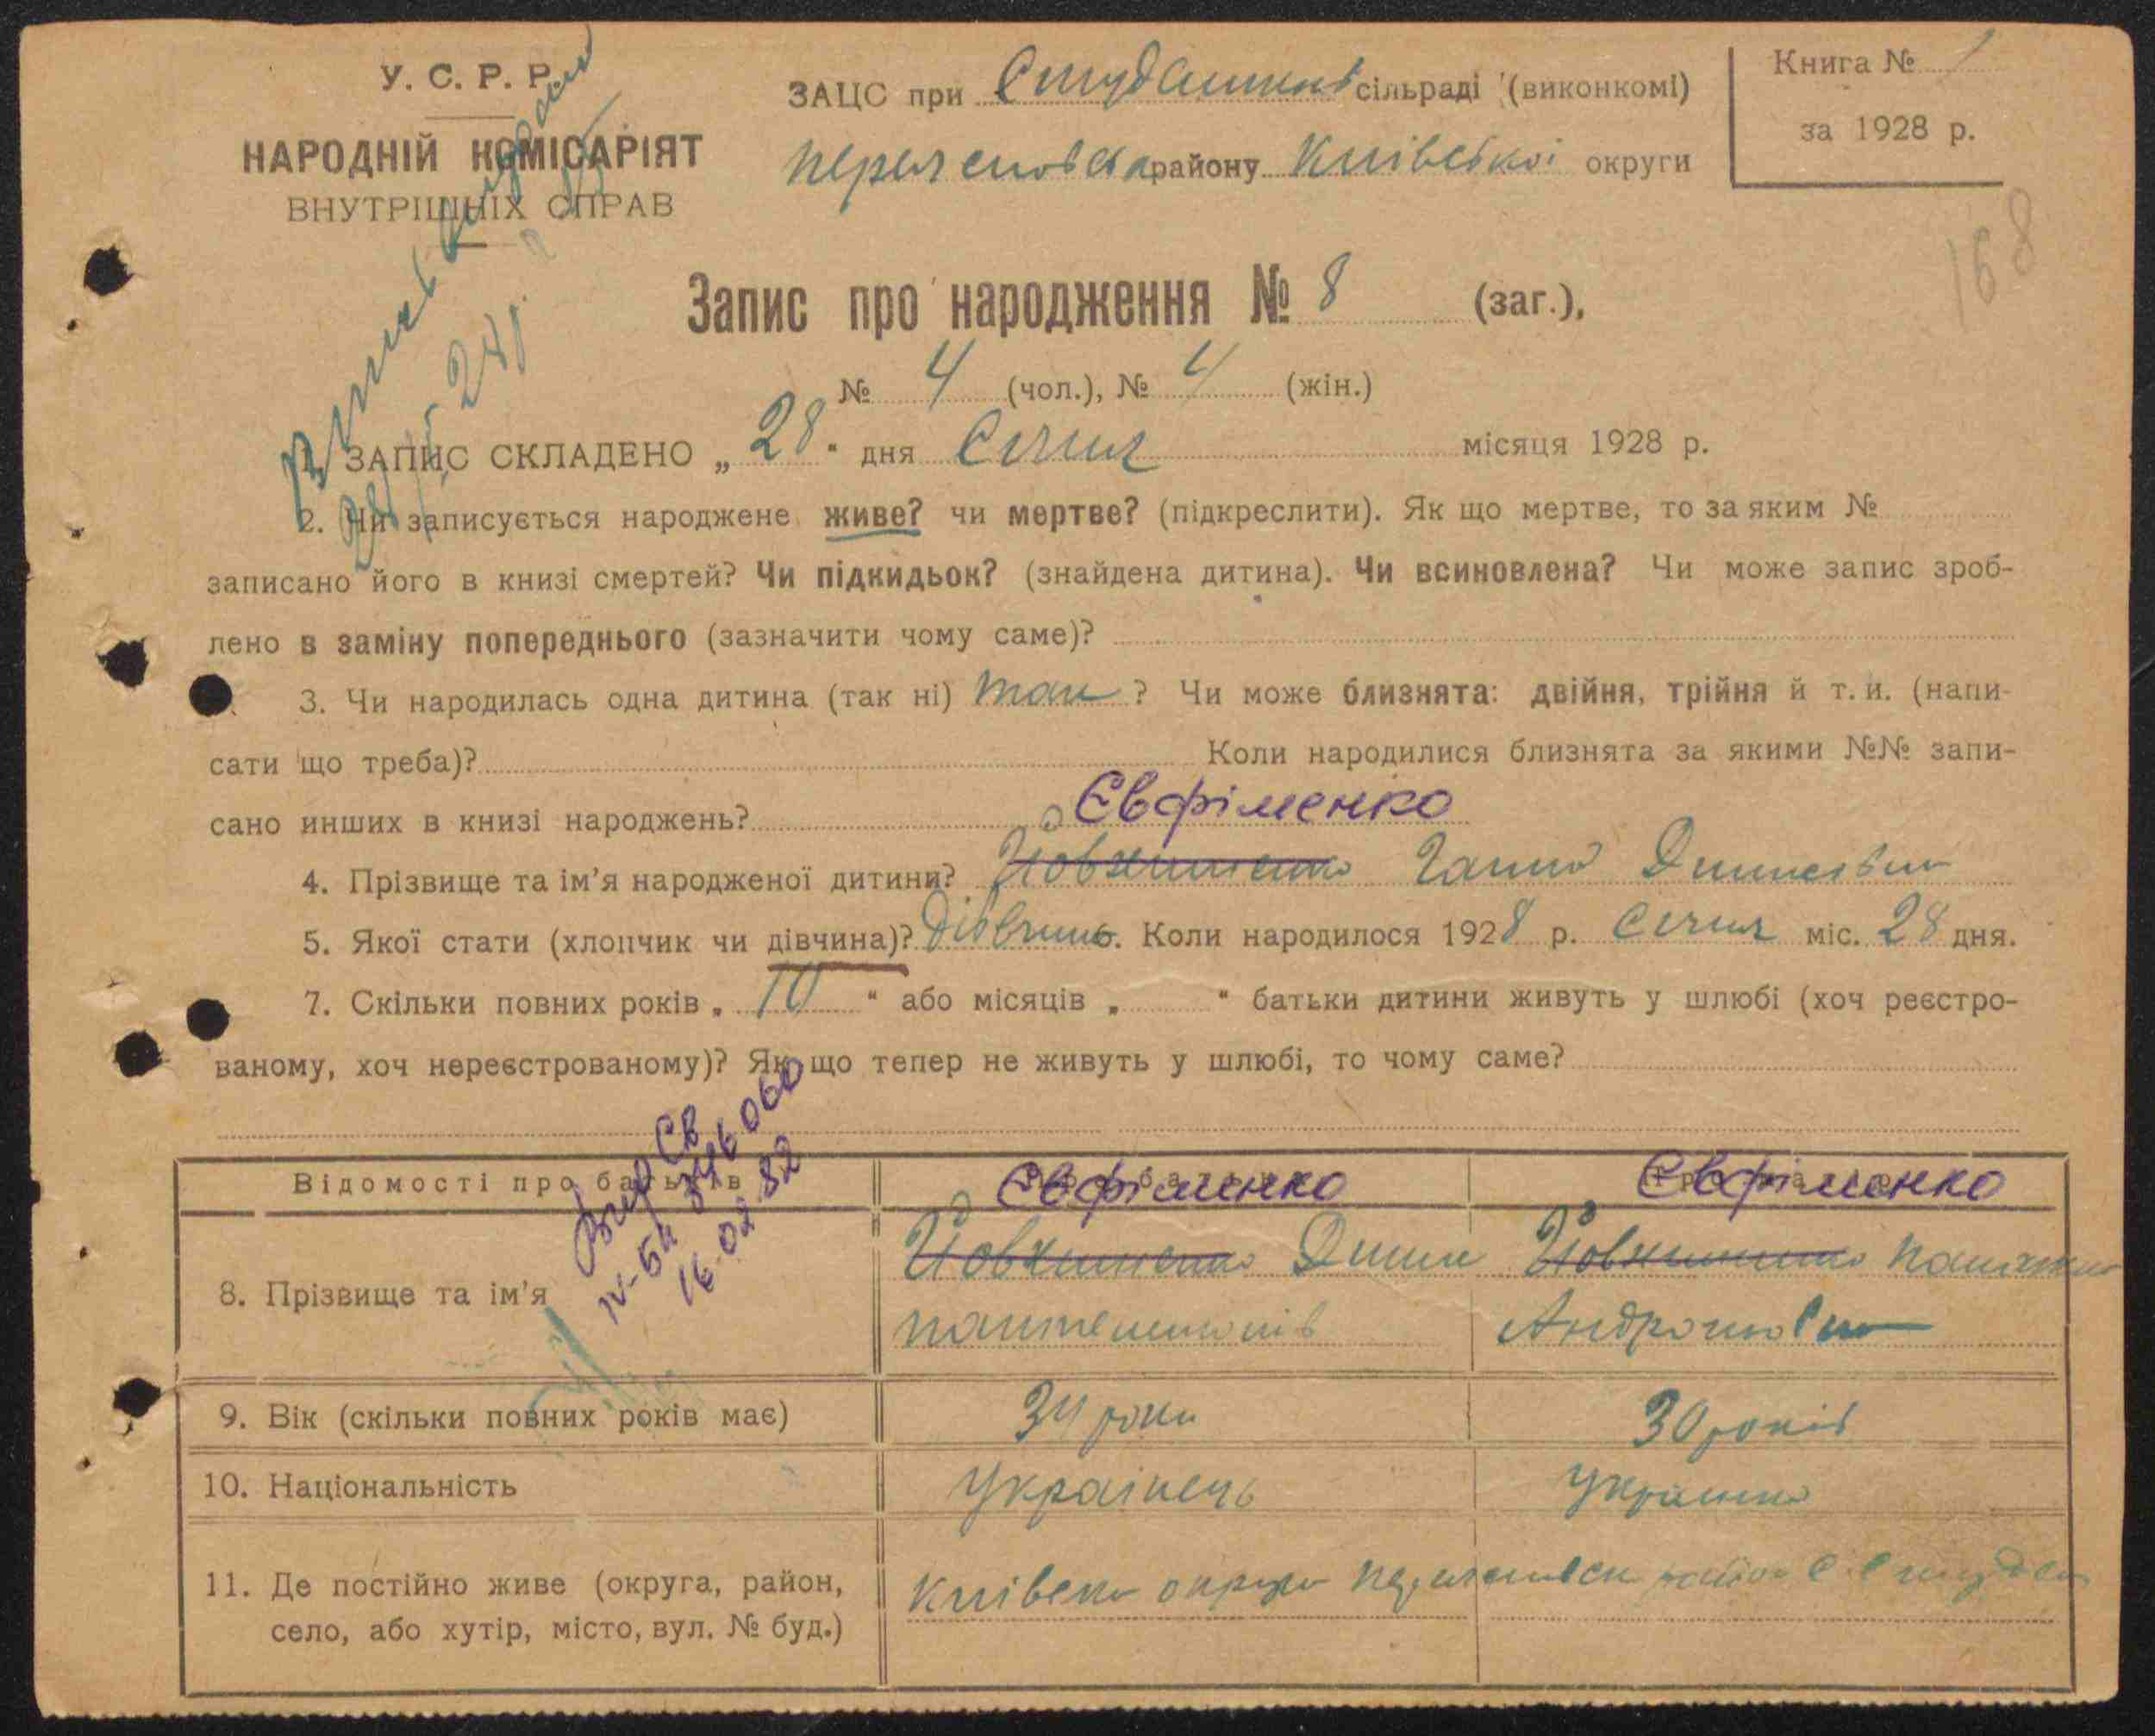 У. С. Р. Р.
НАРОДНІЙ КОМІСАРІЯТ
ВНУТРІШНІХ СПРАВ
ЗАЦС при сільраді (виконкомі)
району Київської округи
Книга № 1
за 1928 р.
168
Запис про народження № 8 (заг.),
№ 4 (чол.), № 4 (жін.)
1. ЗАПИС СКЛАДЕНО „ 28 “ дня Січня місяця 1928 р.
2. Чи записується народжене живе? чи мертве? (підкреслити). Як що мертве, то за яким №
записано його в книзі смертей? Чи підкидьок? (знайдена дитина). Чи всиновлена? Чи може запис зроб-
лено в заміну попереднього (зазначити чому саме)?
3. Чи народилась одна дитина (так ні) так ? Чи може близнята: двійня, трійня й т. и. (напи-
сати що треба)? Коли народилися близнята за якими №№ запи-
сано инших в книзі народжень?
Євфіменко
4. Прізвище та ім’я народженої дитини? Ганна
5. Якої стати (хлопчик чи дівчина)? Дівчина. Коли народилося 1928 р. Січня міс. 28 дня.
7. Скільки повних років „ 10 “ або місяців „ “ батьки дитини живуть у шлюбі (хоч реєстро-
ваному, хоч нереєстрованому)? Як що тепер не живуть у шлюбі, то чому саме?
16.02.82
Відомості про батьків Євфіменко Євфіменко
8. Прізвище та ім’я
9. Вік (скільки повних років має) 34 роки 30 років
10. Національність Українець Українка
11. Де постійно живе (округа, район,
село, або хутір, місто, вул. № буд.)
Київська округа район с